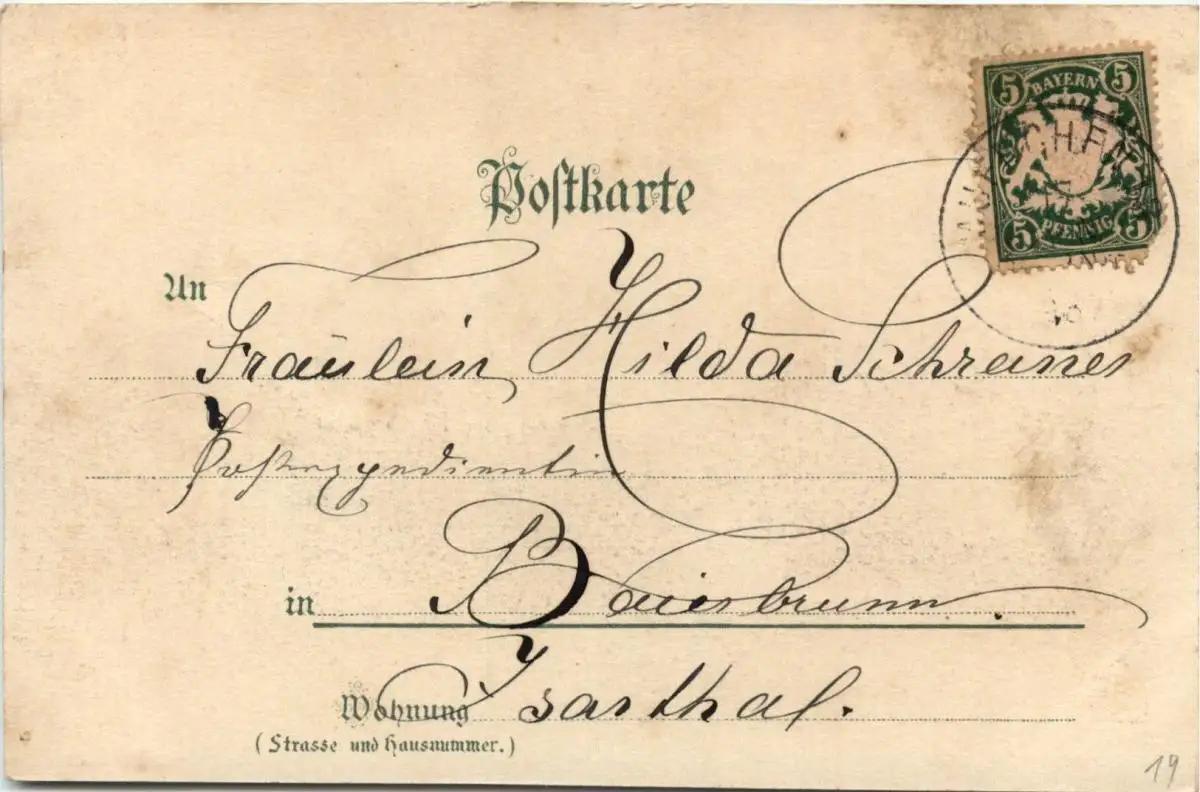 5 BAYERN 5
5 PFENNIG 5
Postkarte
An
Fräulein Hilda Schreiner
Postexpedientin
in Baierbrunn.
Wohnung Isarthal.
(Strasse und Hausnummer.)
19